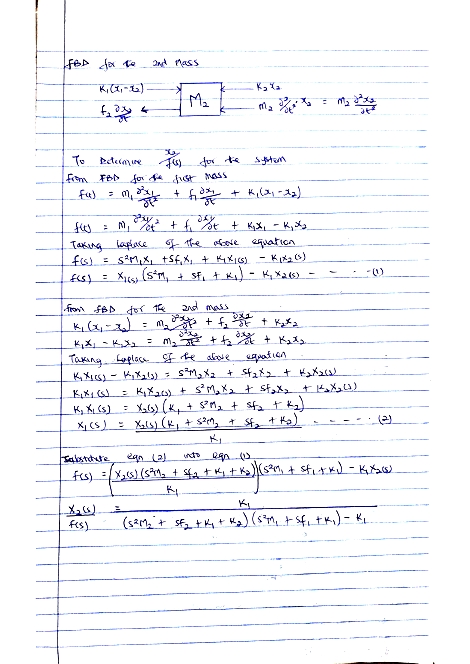 FBD for the 2nd Mass
K₁(x₁-x₂) M₂ K₂x₂
f₂ ∂x₂/∂t m₂ ∂²/∂t² · x₂ = m₂ ∂²x₂/∂t²
To Determine x₂/f(s) for the system
from FBD for the first mass
f(t) = m₁ ∂²x₁/∂t² + f₁ ∂x₁/∂t + K₁(x₁ - x₂)
f(t) = m₁ ∂²x₁/∂t² + f₁ ∂x₁/∂t + K₁x₁ - K₁x₂
Taking Laplace of the above equation
f(s) = s²M₁X₁ + Sf₁X₁ + K₁X₁(s) - K₁X₂(s)
f(s) = X₁(s) (s²M₁ + Sf₁ + K₁) - K₁X₂(s) - - - - (1)
from FBD for the 2nd mass
K₁(x₁ - x₂) = m₂ ∂²x₂/∂t² + f₂ ∂x₂/∂t + K₂x₂
K₁x₁ - K₁x₂ = m₂ ∂²x₂/∂t² + f₂ ∂x₂/∂t + K₂x₂
Taking Laplace of the above equation
K₁X₁(s) - K₁X₂(s) = s²M₂X₂ + Sf₂X₂ + K₂X₂(s)
K₁X₁(s) = K₁X₂(s) + s²M₂X₂ + Sf₂X₂ + K₂X₂(s)
K₁X₁(s) = X₂(s) (K₁ + s²M₂ + Sf₂ + K₂)
X₁(s) = X₂(s) (K₁ + s²M₂ + Sf₂ + K₂) / K₁ - - - - (2)
Substitute eqn (2) into eqn (1)
f(s) = (X₂(s) (s²M₂ + Sf₂ + K₁ + K₂) / K₁) (s²M₁ + Sf₁ + K₁) - K₁X₂(s)
X₂(s) / f(s) = K₁ / (s²M₂ + Sf₂ + K₁ + K₂) (s²M₁ + Sf₁ + K₁) - K₁